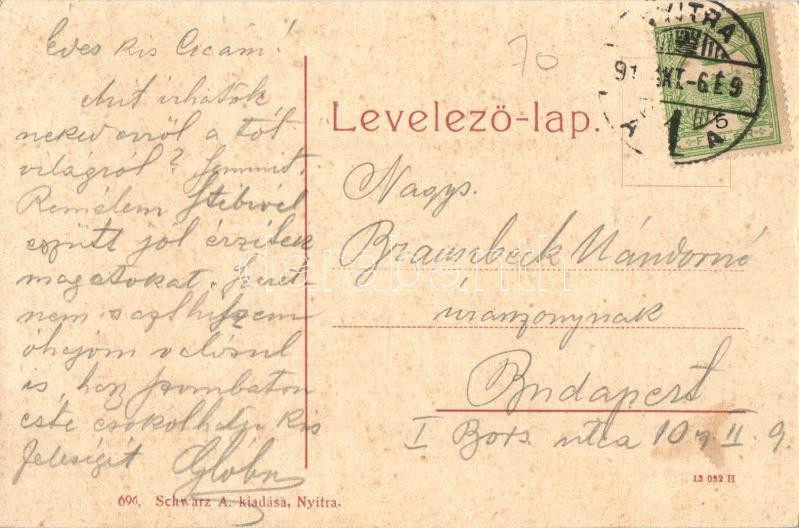 Édes kis Cicám!
Mit írhatok
neked erről a tót
világról? Semmit.
Remélem
együtt jól érzitek
magatokat. Szeret
nem s azt hiszem
óhajom valósul
is, hogy szombaton
este csókolhatja kis
feleségét
70
NYITRA
Levelező-lap.
Nagys.
Braunbeck Nándorné
úrasszonynak
Budapest
I Bors utca 10 II 9.
darabanth
13 032 H
696. Schwarz A. kiadása, Nyitra.